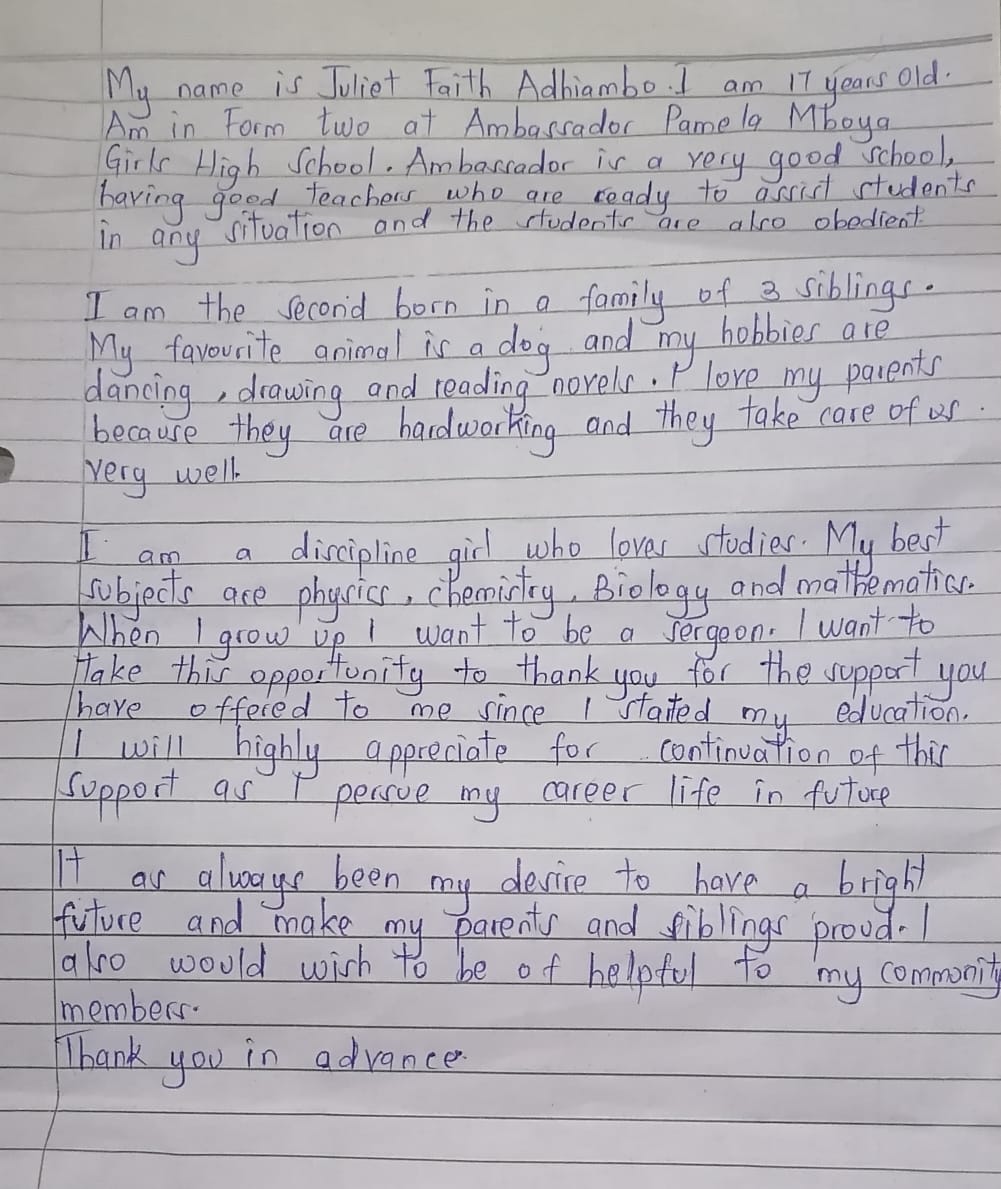 My name is Juliet Faith Adhiambo. I am 17 years old.
Am in Form two at Ambassador Pamela Mboya
Girls High School. Ambassador is a very good school,
having good teachers who are ready to assist students
in any situation and the students are also obedient
I am the second born in a family of 3 siblings.
My favourite animal is a dog and my hobbies are
dancing, drawing and reading novels. I love my parents
because they are hardworking and they take care of us
very well.
I am a discipline girl who loves studies. My best
subjects are physics, chemistry, Biology and mathematics.
When I grow up I want to be a sergeon. I want to
take this opportunity to thank you for the support you
have offered to me since I started my education.
I will highly appreciate for continuation of this
support as I persue my career life in future
It as always been my desire to have a bright
future and make my parents and siblings proud. I
also would wish to be of helpful to my community
members.
Thank you in advance.